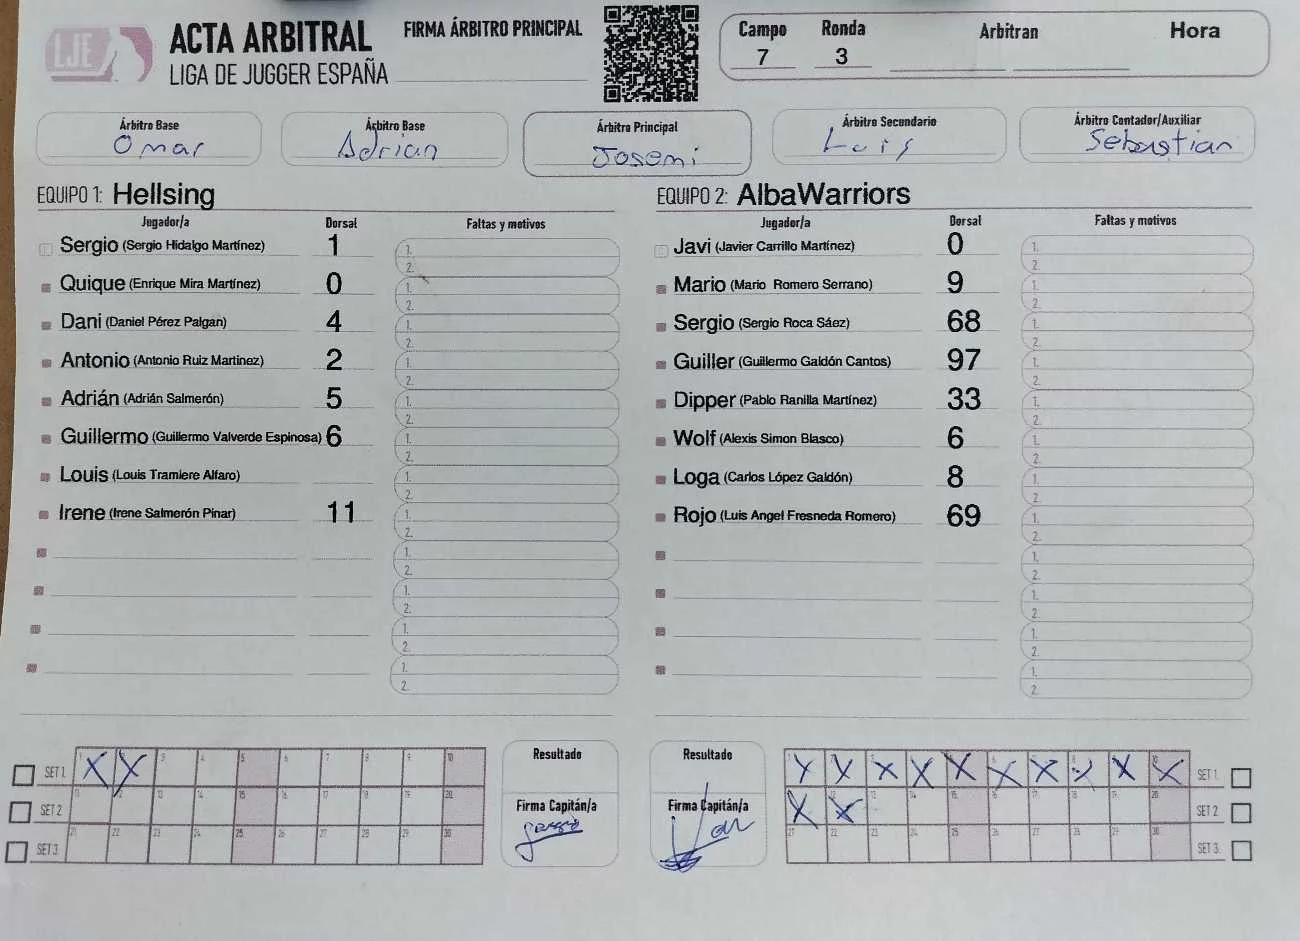 LJE
ACTA ARBITRAL
LIGA DE JUGGER ESPAÑA
FIRMA ÁRBITRO PRINCIPAL
Campo Ronda Arbitran Hora
7 3
Árbitro Base Árbitro Base Árbitro Principal Árbitro Secundario Árbitro Contador/Auxiliar
Omar Adrian Josemi Luis Sebastian
EQUIPO 1: Hellsing
Jugador/a Dorsal Faltas y motivos
Sergio (Sergio Hidalgo Martínez) 1 1. 2.
Quique (Enrique Mira Martínez) 0 1. 2.
Dani (Daniel Pérez Palgan) 4 1. 2.
Antonio (Antonio Ruiz Martinez) 2 1. 2.
Adrián (Adrián Salmerón) 5 1. 2.
Guillermo (Guillermo Valverde Espinosa) 6 1. 2.
Louis (Louis Tramiere Alfaro) 1. 2.
Irene (Irene Salmerón Pinar) 11 1. 2.
1. 2.
1. 2.
1. 2.
1. 2.
EQUIPO 2: AlbaWarriors
Jugador/a Dorsal Faltas y motivos
Javi (Javier Carrillo Martínez) 0 1. 2.
Mario (Mario Romero Serrano) 9 1. 2.
Sergio (Sergio Roca Sáez) 68 1. 2.
Guiller (Guillermo Galdón Cantos) 97 1. 2.
Dipper (Pablo Ranilla Martínez) 33 1. 2.
Wolf (Alexis Simon Blasco) 6 1. 2.
Loga (Carlos López Galdón) 8 1. 2.
Rojo (Luis Angel Fresneda Romero) 69 1. 2.
1. 2.
1. 2.
1. 2.
1. 2.
SET 1 X X 3 4 5 6 7 8 9 10
SET 2 11 12 13 14 15 16 17 18 19 20
SET 3 21 22 23 24 25 26 27 28 29 30
Resultado
Firma Capitán/a
Sergio
Resultado
Firma Capitán/a
X X X X X X X X X X SET 1
X X 13 14 15 16 17 18 19 20 SET 2
21 22 23 24 25 26 27 28 29 30 SET 3